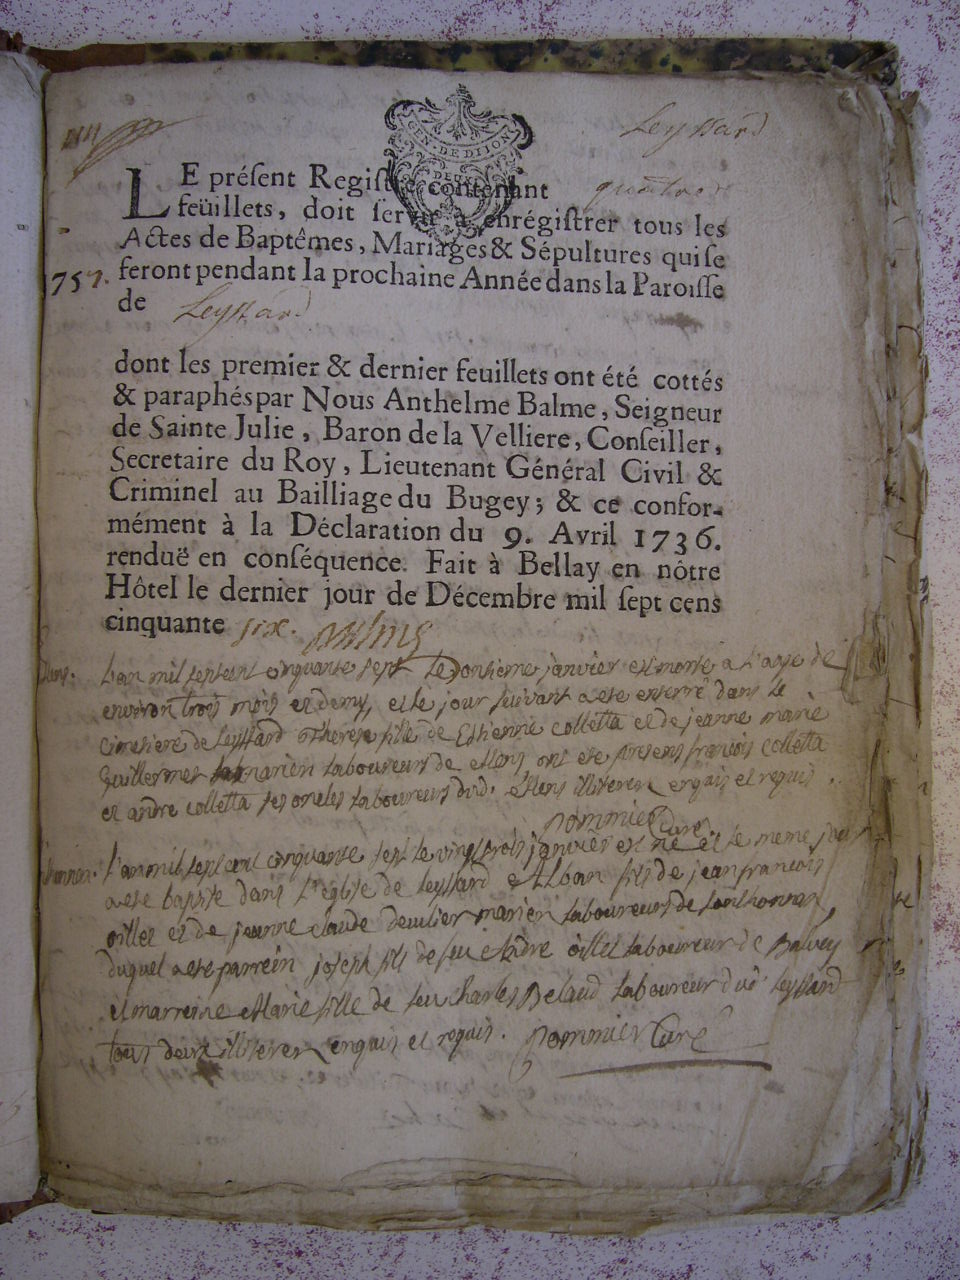 Leyssard
GEN. DE DIJON
DEUX
LE présent Registre contenant quatre
feüillets, doit servir à enrégistrer tous les
Actes de Baptêmes, Mariages & Sépultures qui se
1757. feront pendant la prochaine Année dans la Paroisse
de Leyssard
dont les premier & dernier feuillets ont été cottés
& paraphés par Nous Anthelme Balme, Seigneur
de Sainte Julie, Baron de la Velliere, Conseiller,
Secretaire du Roy, Lieutenant Général Civil &
Criminel au Bailliage du Bugey; & ce confor-
mément à la Déclaration du 9. Avril 1736.
renduë en conséquence. Fait à Bellay en nôtre
Hôtel le dernier jour de Décembre mil sept cens
cinquante six. Balme
L'an mil sept cent cinquante sept le onsieme janvier est morte a l'aage de
environ trois mois et demy, et le jour suivant a ete enterré dans le
cimetiere de Leyssard Therese fille de Estienne colletta et de jeanne marie
Guillermet marien laboureurs de ont ete presens francois colletta
et andre colletta ses oncles laboureurs dud. illiteres enquis et requis.
pommier Curé.
L'an mil sept cent cinquante sept le vingt trois janvier est né et le meme jour
a ete baptise dans l'eglise de leyssard Alban fils de jean francois
oillet et de jeanne claude marien laboureurs de
duquel a ete parrein joseph fils de feu Andre oillet laboureur de Balvey
et marreine Marie fille de feu charles Belaud laboureur dud leyssard
tous deux illiteres enquis et requis. pommier Curé